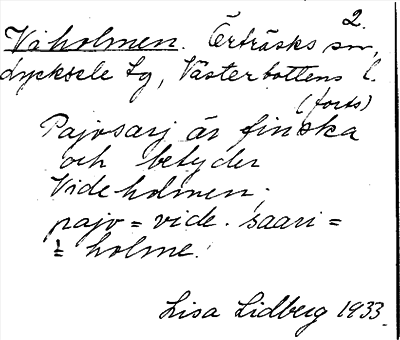 2.
Viholmen. Örträsks sn,
Lycksele Lg, Västerbottens l.
(forts)
Pajosarj är finska
och betyder
Videholmen.
pajo = vide. saari =
= holme.
Lisa Lidberg 1933.